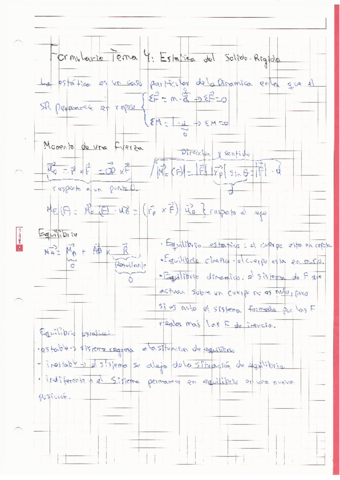 Formulario Tema 4: Estática del Solido Rigido
La estática es un caso particular de la Dinamica en la que el
SR permanece en reposo { ΣF = m · a → ΣF = 0
ΣM = I · α → ΣM = 0
0
Momento de una fuerza
Direccion y sentido
respecto a un punto
d
respecto al eje
Equilibrio
0
Resultante
0
• Equilibrio estatico: el cuerpo esta en reposo
• Equilibrio cinetico: el cuerpo esta en
• Equilibrio dinamico: el sistema de F que
actuan sobre un cuerpo no es nulo, pero
si es nulo el sistema formado por las F
reales mas las F de inercia.
Equilibrio
• estable → sistema regresa a la situacion de equilibrio
• inestable → el sistema se aleja de la situación de equilibrio
• indiferente → el sistema permanece en equilibrio en una nueva
posicion.